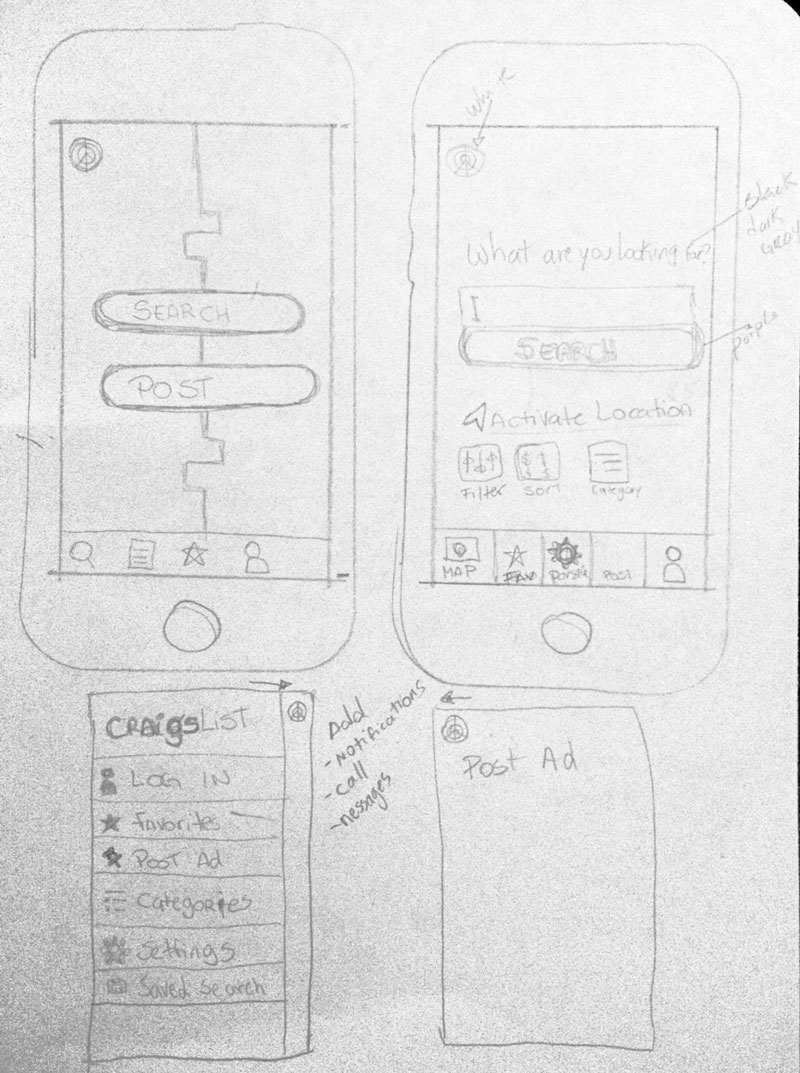 SEARCH
POST
White
What are you looking for?
Black
dark
GRAY
SEARCH
purple
Activate Location
Filter
Sort
Category
MAP
FAV
Post
CRAigsLiST
LOG IN
Favorites
Post Ad
Categories
Settings
Saved Search
Add
- notifications
- call
- messages
Post Ad